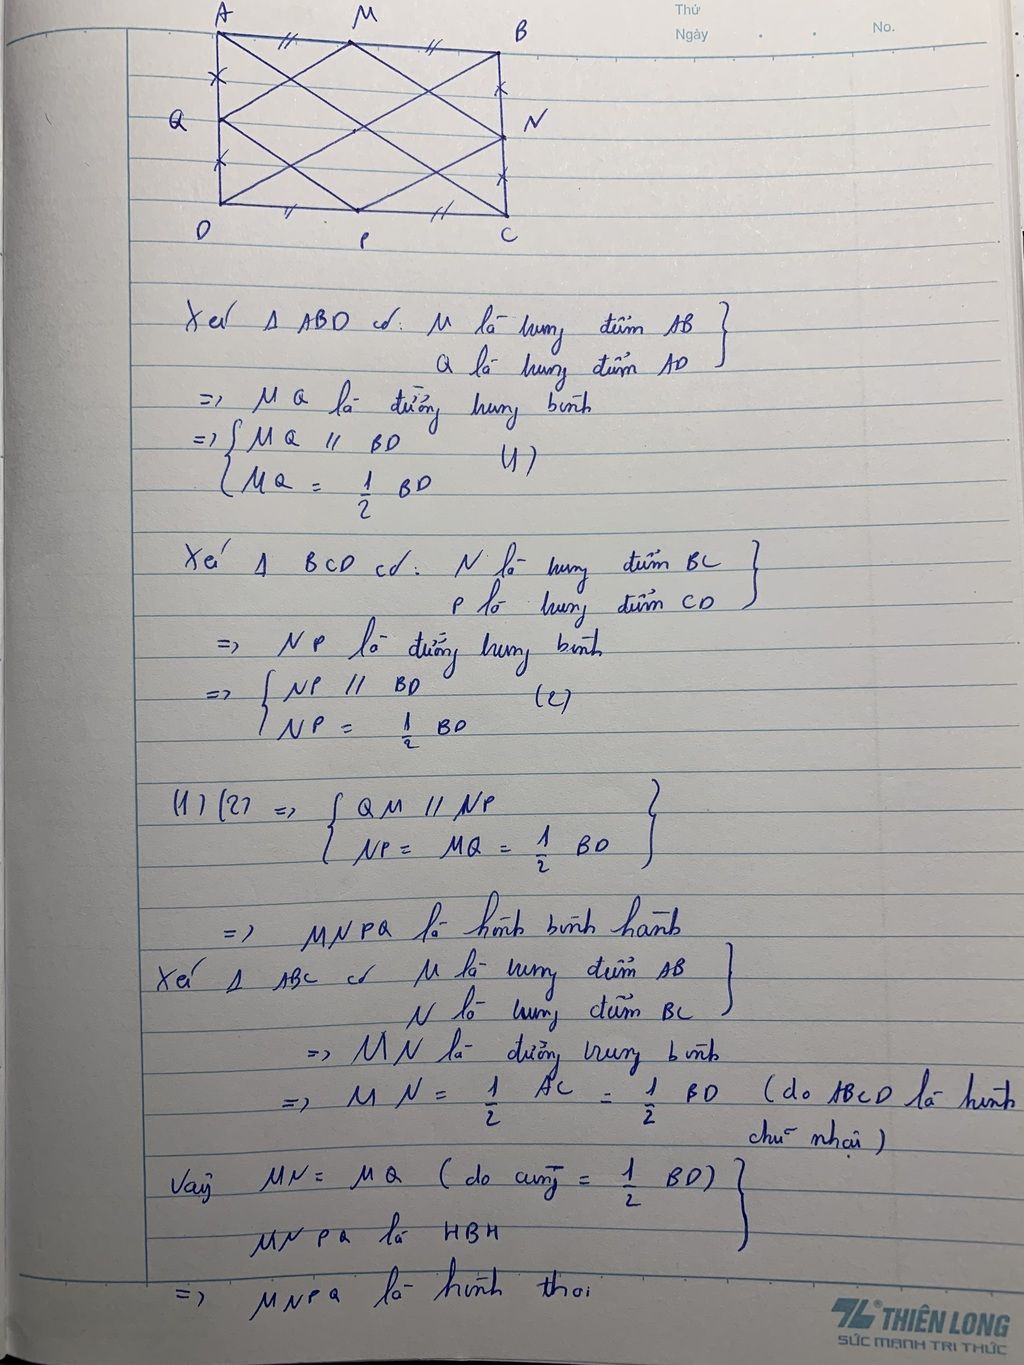 Thứ
Ngày . . No.
A M B
Q N
D P C
Xét Δ ABD có: M là trung điểm AB
Q là trung điểm AD
=> MQ là đường trung bình
=> { MQ // BD
MQ = 1/2 BD (1)
Xét Δ BCD có: N là trung điểm BC
P là trung điểm CD
=> NP là đường trung bình
=> { NP // BD
NP = 1/2 BD (2)
(1) (2) => { QM // NP
NP = MQ = 1/2 BD
=> MNPQ là hình bình hành
Xét Δ ABC có M là trung điểm AB
N là trung điểm BC
=> MN là đường trung bình
=> MN = 1/2 AC = 1/2 BD (do ABCD là hình
chữ nhật)
Vậy MN = MQ (do cùng = 1/2 BD)
MNPQ là HBH
=> MNPQ là hình thoi
TL® THIÊN LONG
SỨC MẠNH TRI THỨC